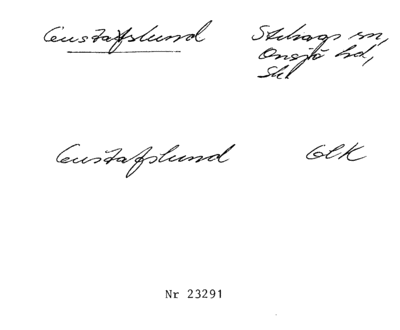 Gustafslund Stehags sn,
Onsjö hd,
Skl
Gustafslund GEK
Nr 23291